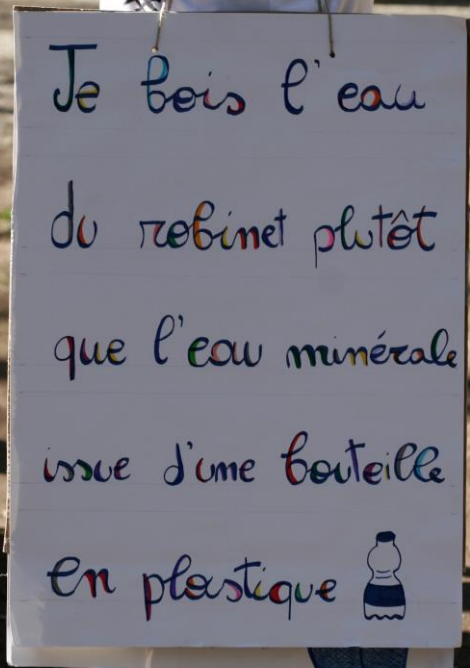 Je bois l'eau
du robinet plutôt
que l'eau minérale
issue d'une bouteille
en plastique